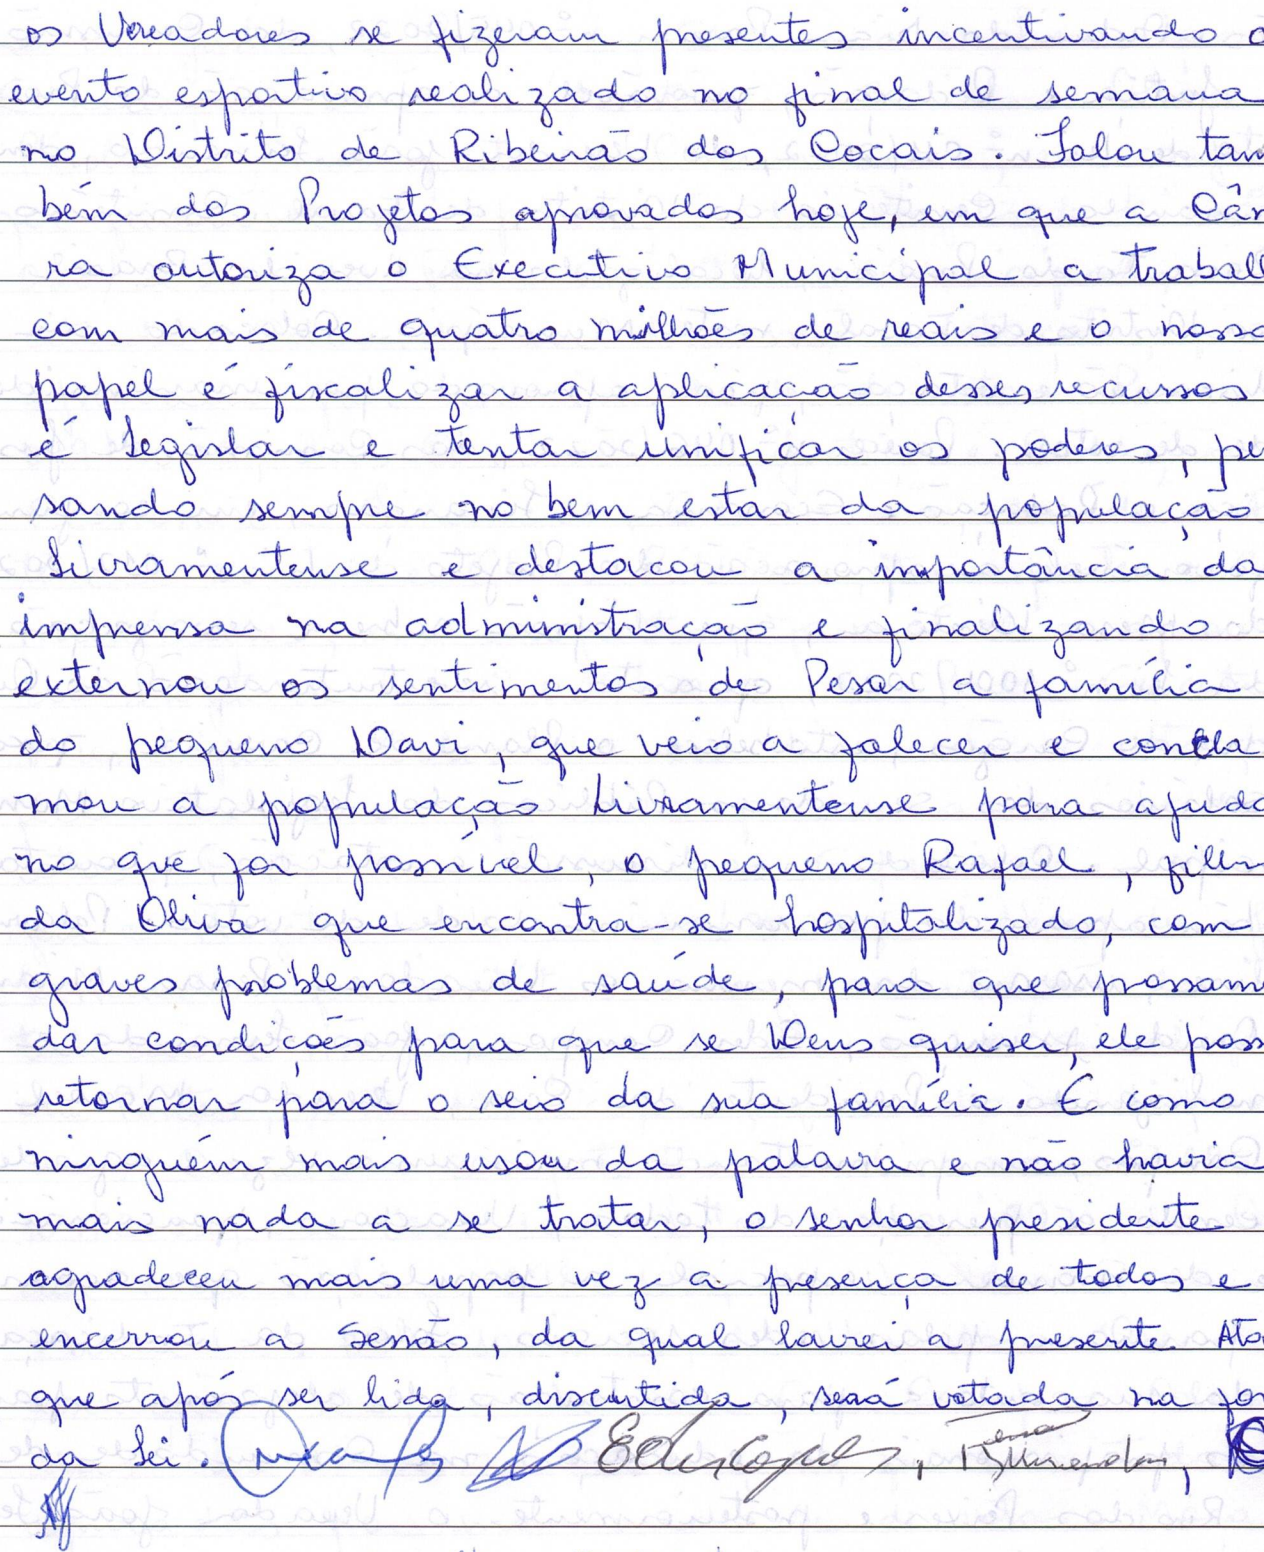 os Vereadores se fizeram presentes incentivando o
evento esportivo realizado no final de semana
no Distrito de Ribeirão dos Cocais. Falou tam
bém dos Projetos aprovados hoje, em que a Câm
ra autoriza o Executivo Municipal a traball
com mais de quatro milhões de reais e o nosso
papel é fiscalizar a aplicação desses recursos
é Legislar e tentar unificar os poderes, pe
sando sempre no bem estar da população
Livramentense e destacou a importância da
imprensa na administração e finalizando
externou os sentimentos de Pesar a família
do pequeno Davi, que veio a falecer e concla
mou a população Livramentense para ajuda
no que for possível, o pequeno Rafael, filh
da Oliva que encontra-se hospitalizado, com
graves problemas de saúde, para que possam
dar condições para que se Deus quiser, ele poss
retornar para o seio da sua família. E como
ninguém mais usou da palavra e não havia
mais nada a se tratar, o senhor presidente
agradeceu mais uma vez a presença de todos e
encerrou a Sessão, da qual lavrei a presente Ata
que após ser lida, discutida, será votada na for
da Lei.